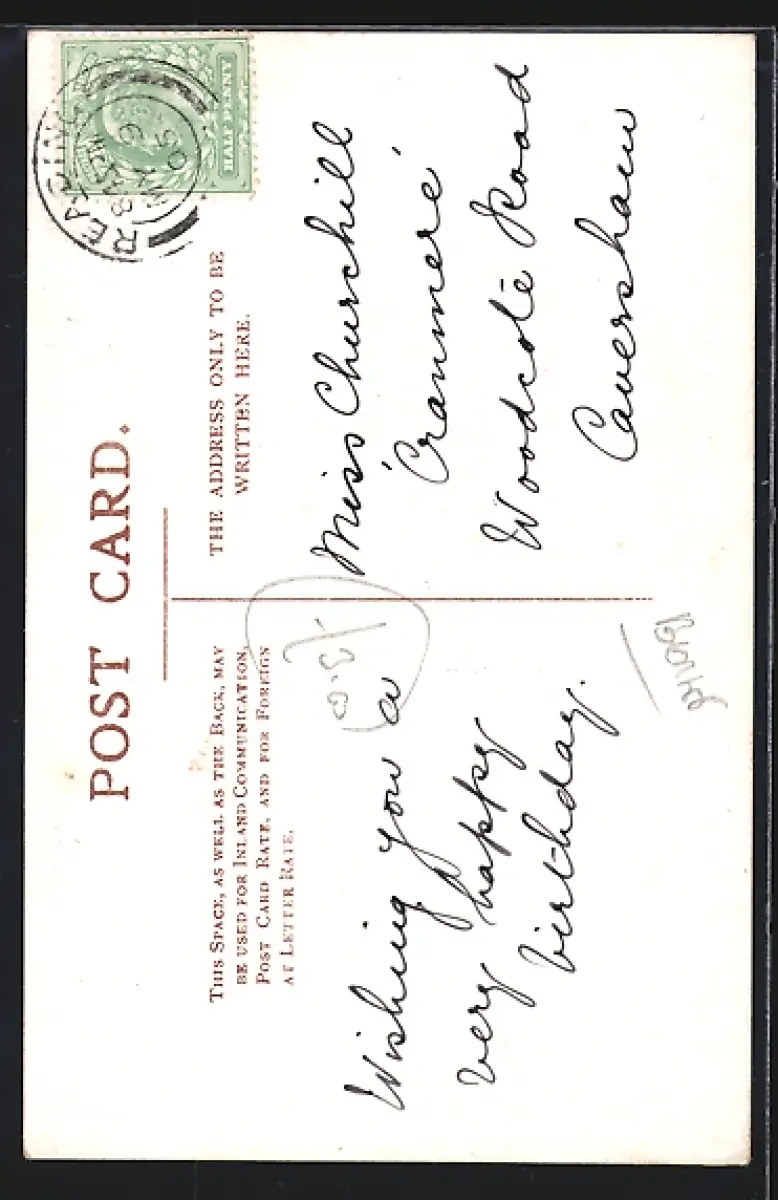 POST CARD.
THIS SPACE, AS WELL AS THE BACK, MAY
BE USED FOR INLAND COMMUNICATION,
POST CARD RATE, AND FOR FOREIGN
AT LETTER RATE.
THE ADDRESS ONLY TO BE
WRITTEN HERE.
HALF PENNY
READING
Wishing you a
very happy
birthday.
Miss Churchill
'Cranmere'
Woodcote Road
Caversham